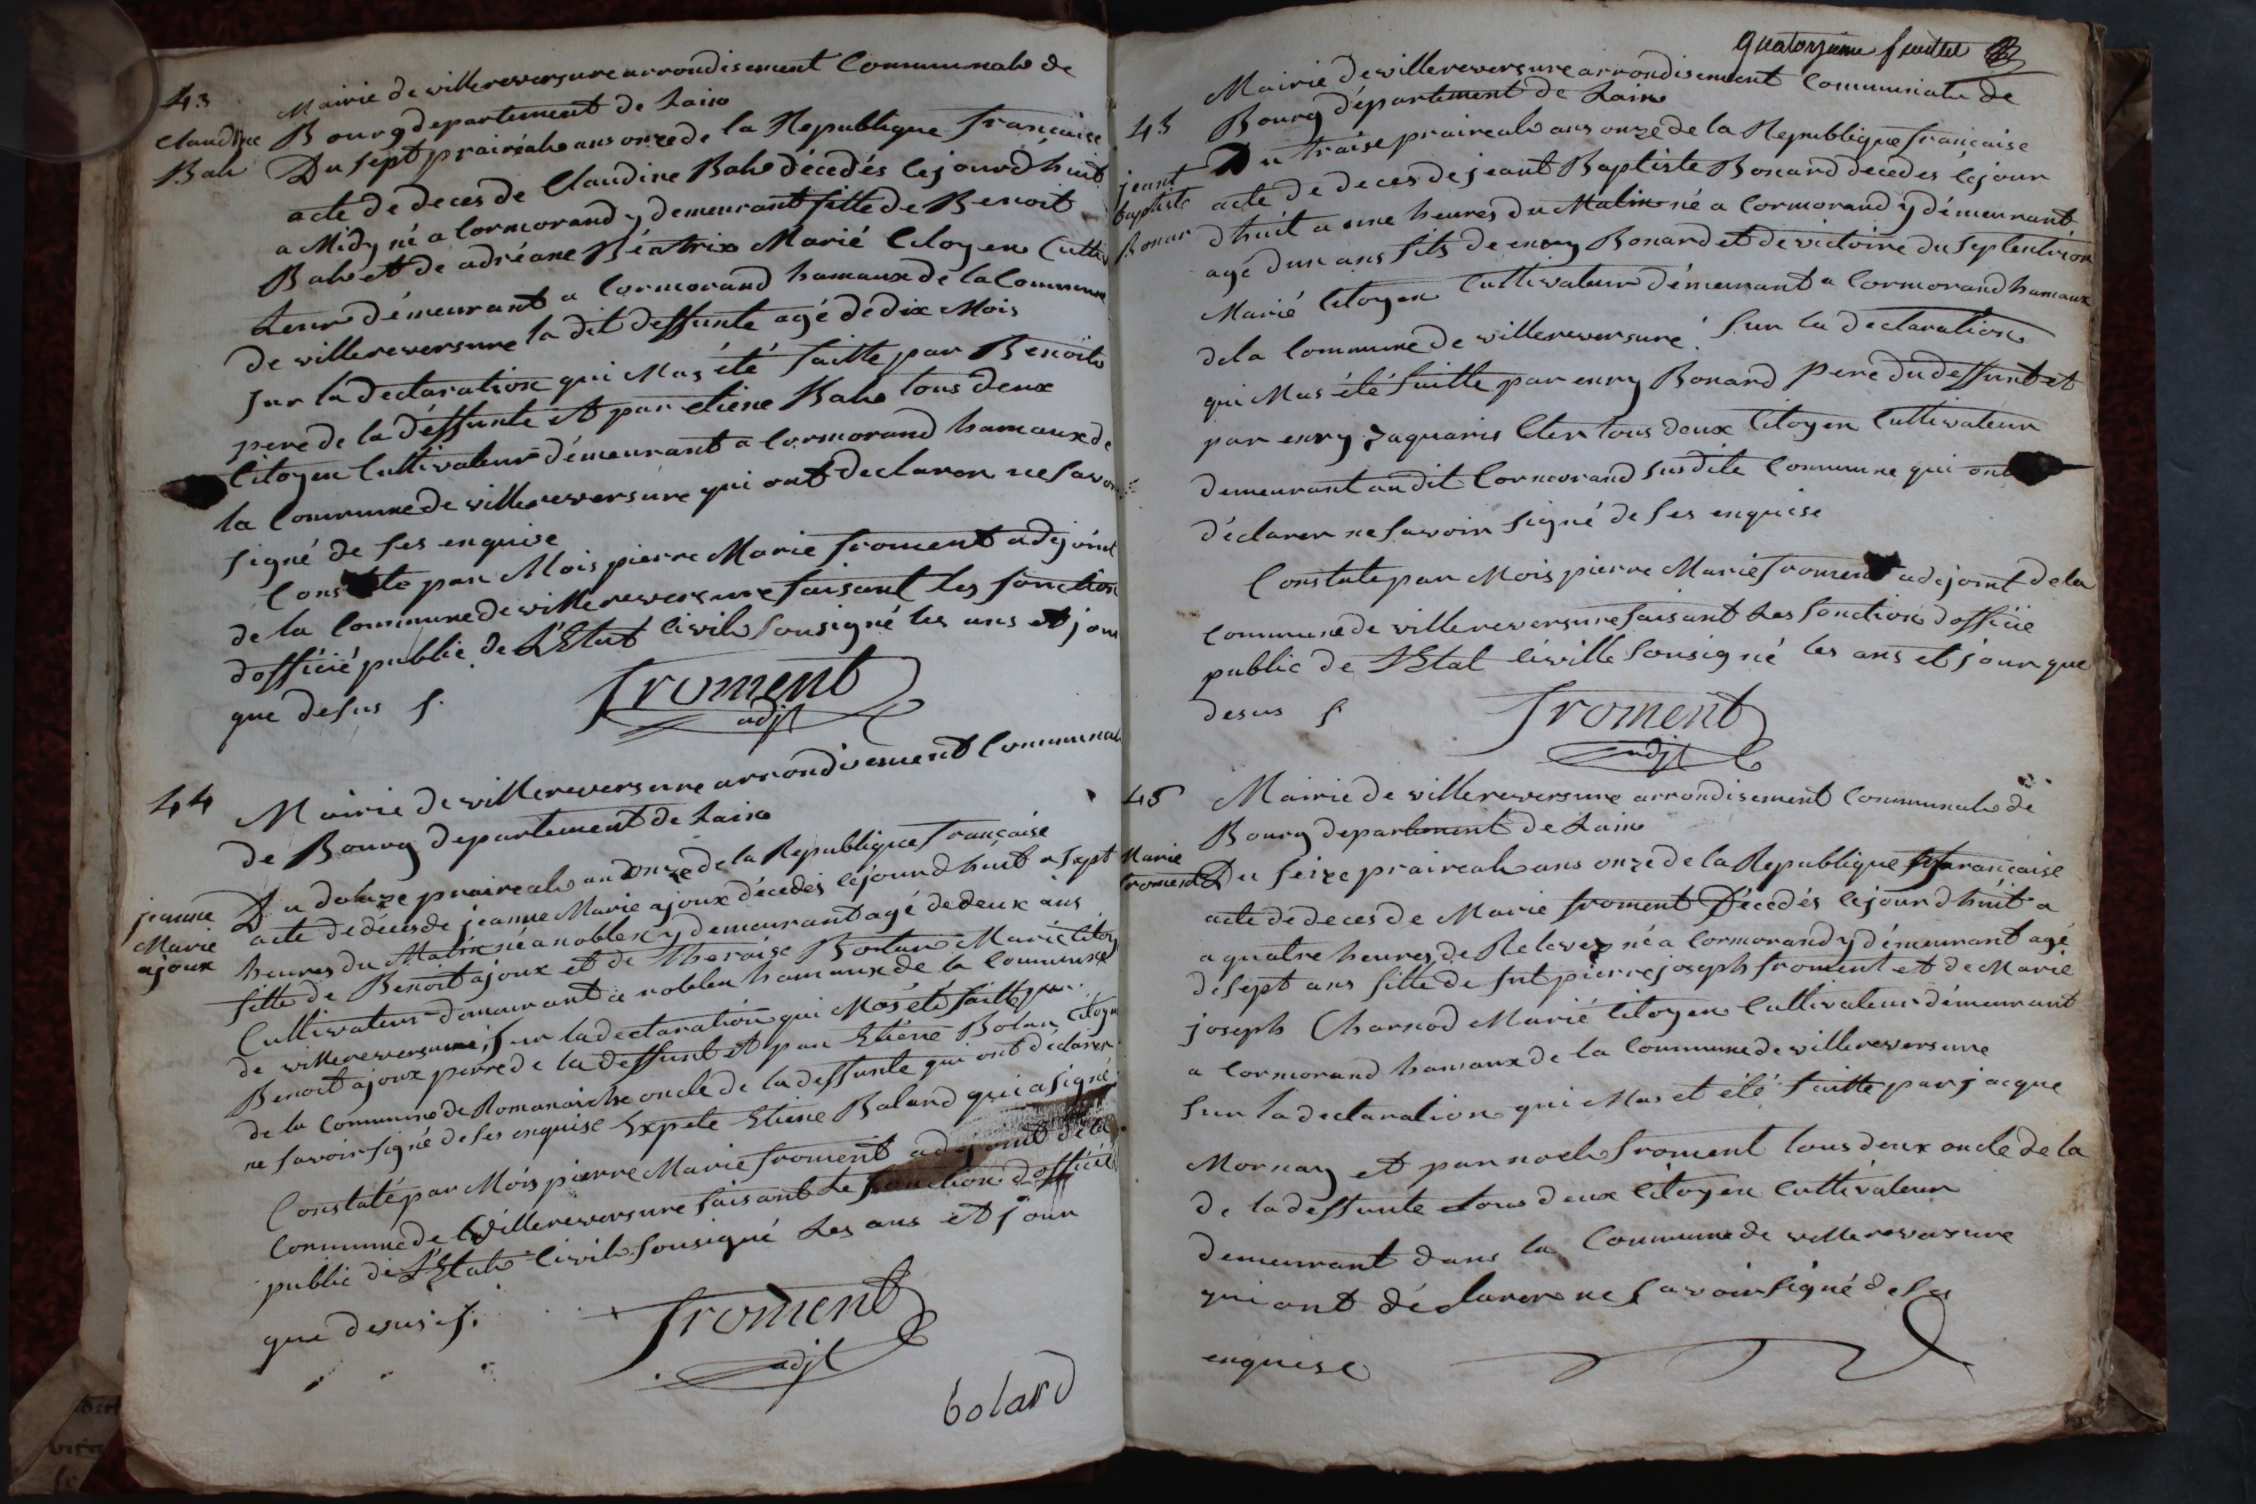 43
Claudine
Bale
Mairie de villereversure arrondisement Communale de
Bourg departement de Lain
Du sept prairéale ans onze de la Republique française
acte de deces de Claudine Bale décedés lejourdhuit
a Midy né a Cormorand y demeurant fille de Benoit
Bale et de adréane Béatrix Marié Citoyen Culti
Leur démeurant a Cormorand hamaux de la Commune
de villereversure la dit deffunte agé de dix Mois
Sur la declaration qui Mas été faitte par Benoite
pere de la déffunte et par etiene Bale tous deux
Citoyen Cultivateur démeurant a Cormorand hamaux de
la Commune de villereversure qui ont declarer ne savoir
signé de ses enquise
Constate par Mois pierre Marie froment adjoint
de la Commune de villereversure faisant les fonction
dofficié public de LEtat Civile sousigné les ans et jour
que desus f.
froment
adjt
44
jeanne
Marie
ajoux
Mairie de villereversure arrondisement Communale
de Bourg departement de Lain
Du douze praireale an onze de la Republique française
acte de déces de jeanne Marie ajoux décedés lejourdhuit a sept
heures du Matin né a noblex y demeurant agé de deux ans
fille de Benoit ajoux et de theraise Bolan Marié Citoy
Cultivateur demeurant a noblex hamaux de la Commune
de villereversure, Sur la declaration qui Mas été faitte par
Benoit ajoux perre de la deffunt et par Etiene Bolan Citoyen
de la Commune de Romanaiche oncle de la deffunte qui ont déclarer
ne savoir signé de ses enquise Expete Etiene Boland qui a signé
Constaté par Mois pierre Marie froment adjoint de la
Commune de Villereversure faisant Le fonction dofficié
public de LEtate Civile sousigné Les ans et jour
que desus f.
froment
adjt
bolard
quatorzieme feuillet
45
jeant
baptiste
Bonar
Mairie de villereversure arrondisement Communiale de
Bourg département de Lain
Du traise praireale ans onze de la Republique française
acte de deces de jeant Baptiste Bonard decedés lejour
dhuit a une heures du Matin né a Cormorand y démeurant
agé dun ans fils de enry Bonard et de victoire du Septentrion
Marié Citoyen Cultivateur démeurant a Cormorand hamaux
dela Commune de villereversuré. Sur la declaration
qui Mas été faitte par enry Bonard Pere du deffunt et
par enry Zaquaris Cler tous deux Citoyen Cultivateur
demeurant audit Cormorand susdite Commune qui ont
déclarer ne savoir signé de ses enquise
Constate par Mois pierre Marie froment adejoint de la
Commune de villereversure faisant Les fonction dofficie
public de LEtat Civille sousigné les ans et jour que
desus f
froment
adjt
46
Marie
froment
Mairie de villereversure arrondisement Communale de
Bourg departement de Lain
Du seize praireale ans onze de la Republique française
acte de deces de Marie froment Décédés lejourdhuit a
a quatre heures de Relevez né a Cormorand y démeurant agé
de sept ans fille de fut pierre joseph froment et de Marie
joseph Charnod Marié Citoyen Cultivateur démeurant
a Cormorand hamaux de la Commune de villereversure
Sur la declaration qui Mas et été faitte par jacque
Mornay et par noele froment tous deux oncle de la
de la deffunte etous deux Citoyen Cultivateur
demeurant dans la Commune de villereversure
qui ont déclarer ne savoir signé de ses
enquise